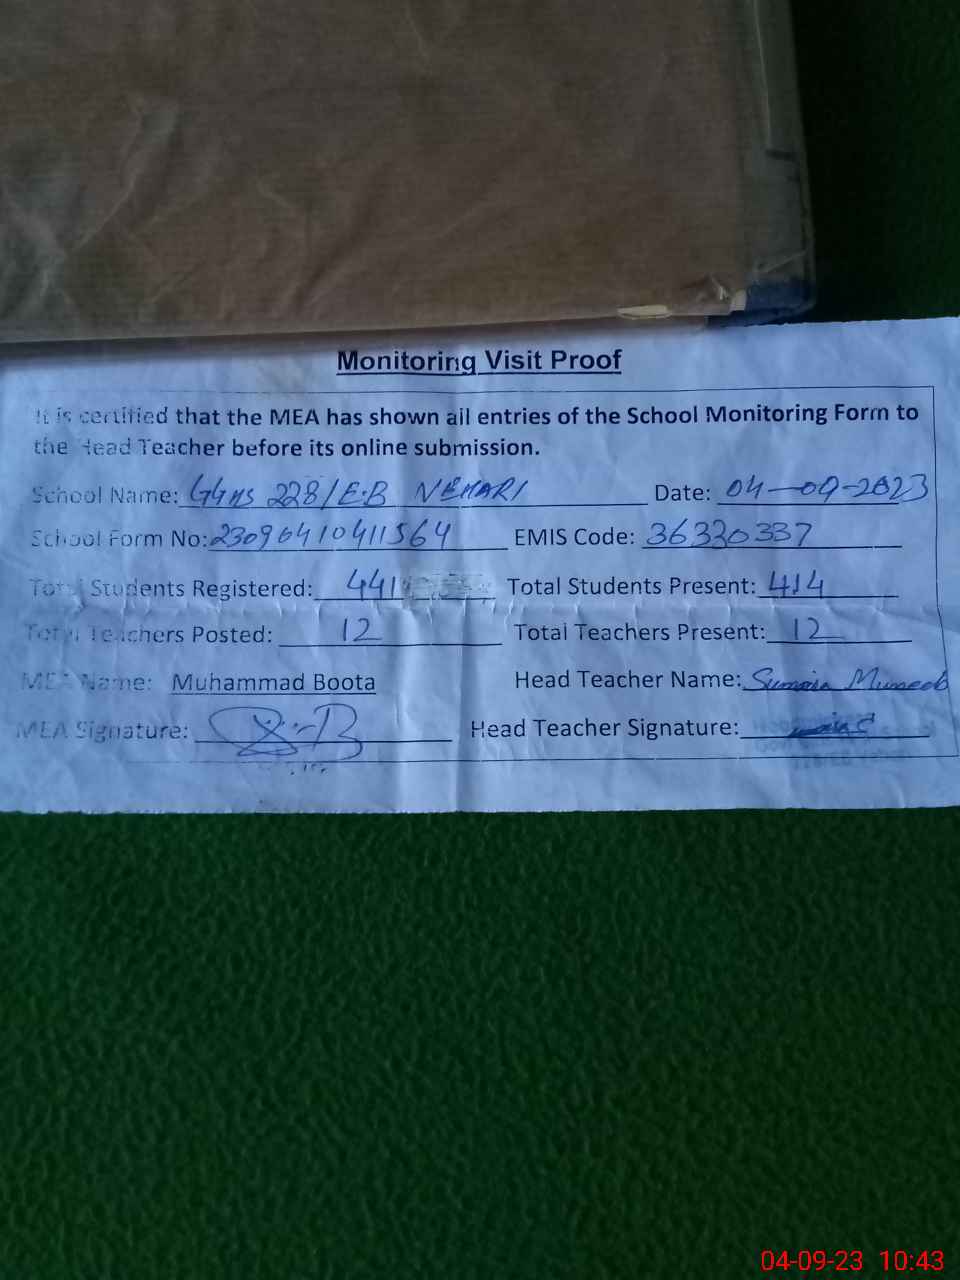 Monitoring Visit Proof
It is certified that the MEA has shown all entries of the School Monitoring Form to
the Head Teacher before its online submission.
School Name: GGHS 228/E.B VEHARI Date: 04-09-2023
School Form No: 23090410411564 EMIS Code: 36320337
Total Students Registered: 441 Total Students Present: 414
Total Teachers Posted: 12 Total Teachers Present: 12
MEA Name: Muhammad Boota Head Teacher Name: Sumaira Muneeb
MEA Signature: Head Teacher Signature:
04-09-23 10:43